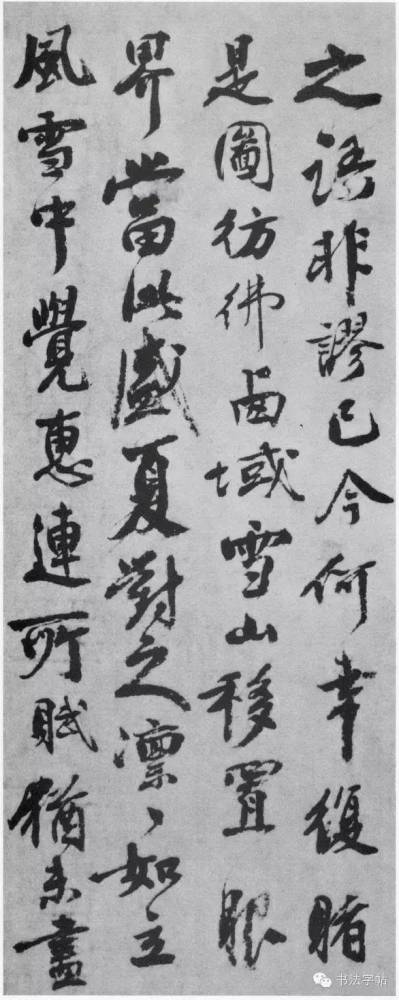 之語非謬已今何幸復睹
是圖彷彿卤域雪山移置眼
界當此盛夏對之凛〻如立
風雪中覺惠連所賦猶未盡
书法字帖